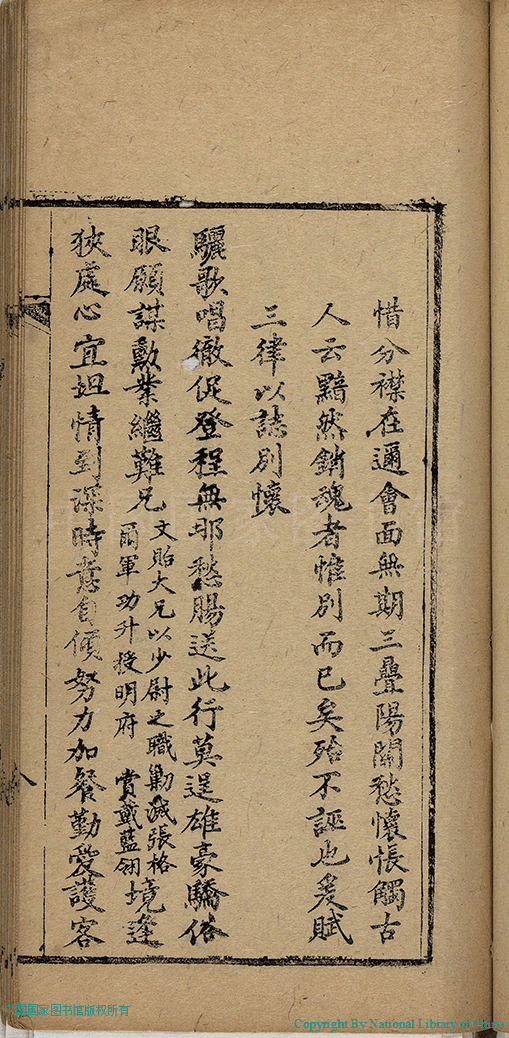 惜分襟在邇會面無期三疊陽關愁懷悵觸古
人云黯然銷魂者惟別而已矣殆不誣也爰賦
三律以誌別懷
驪歌唱徹促登程無那愁腸送此行莫逞雄豪驕俗
眼願謀勳業繼難兄文貽大兄以少尉之職勦滅張格
爾軍功升授明府 賞戴藍翎境逢
狹處心宜坦情到深時意自傾努力加餐勤愛護客
中国国家图书馆版权所有
Copyright By National Library of China